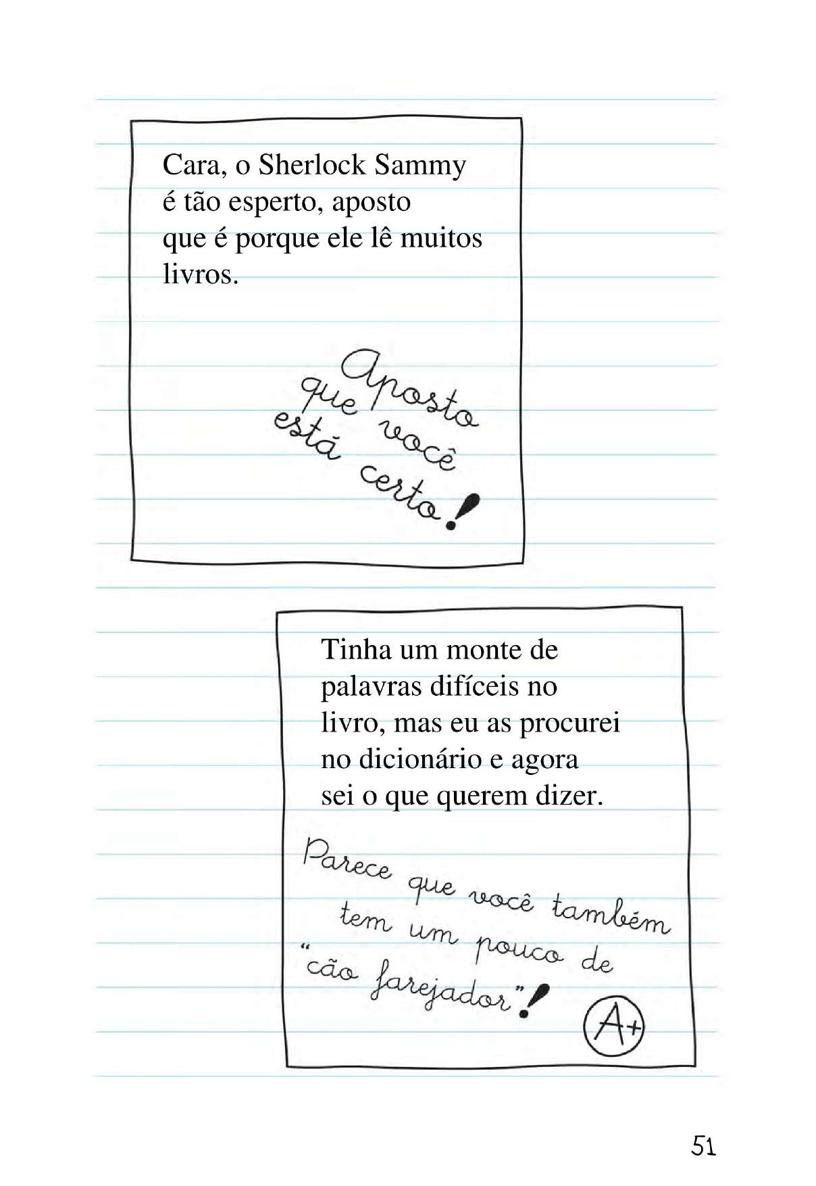 Cara, o Sherlock Sammy
é tão esperto, aposto
que é porque ele lê muitos
livros.
Aposto
que você
está certo!
Tinha um monte de
palavras difíceis no
livro, mas eu as procurei
no dicionário e agora
sei o que querem dizer.
Parece que você também
tem um pouco de
“cão farejador”!
A+
51